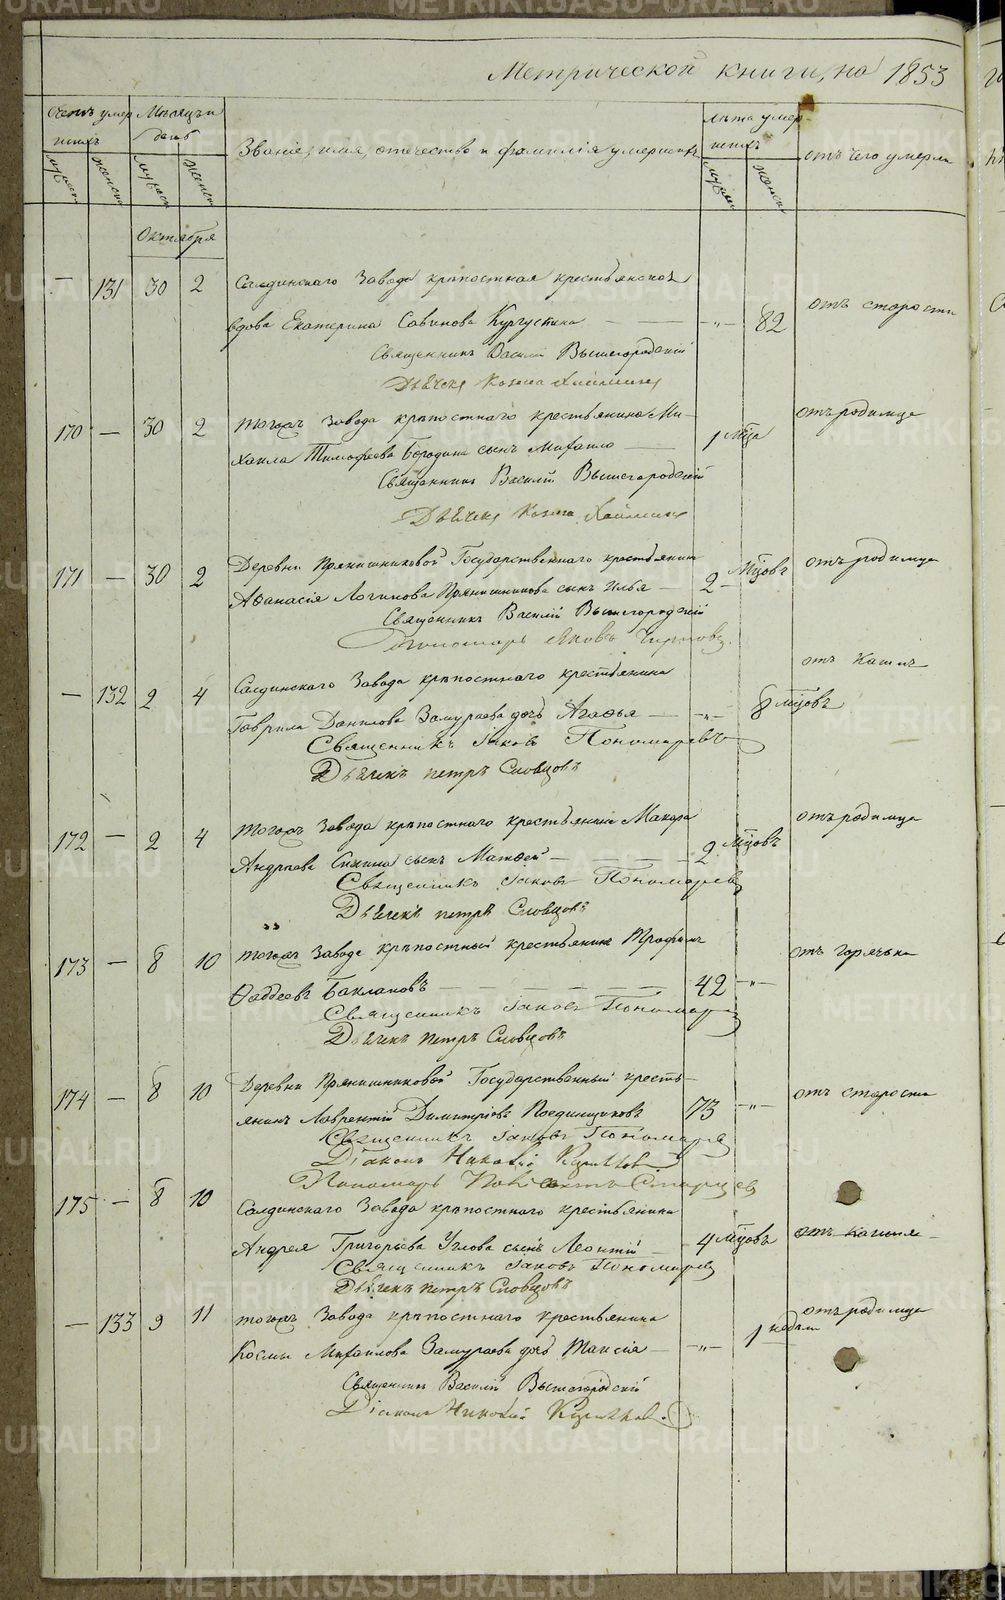 Метрической книги, на 1853
Счетъ умершихъ
Мѣсяцъ и день
Званіе, имя, отечество и фамилія умершихъ
лѣта умершихъ
отъ чего умерли
мужеск женск мужеск женск мужеск женск
Октября
— 131 30 2 Салдинскаго Завода крѣпостная крестьянская
вдова Екатерина Савинова — „ — 82 отъ старости
Священникъ Василій Вышегородскій
Дьячекъ Козма
170 — 30 2 тогожъ Завода крѣпостнаго крестьянина Ми-
хаила Тимофѣева Бородина сынъ Михаило — 1 мца отъ родимца
Священникъ Василій Вышегородскій
Дьячекъ Козма
171 — 30 2 Деревни Прянишниковой Государственнаго крестьянина
Аѳанасія Логинова Прянишникова сынъ Илья — 2 мцовъ — отъ родимца
Священникъ Василій Вышегородскій
Пономарь Яковъ
— 132 2 4 Салдинскаго Завода крѣпостнаго крестьянина
Гаврила Данилова Замураева дочь Агаѳья — „ — 8 мцовъ отъ кашля
Священникъ Іаковъ Пономаревъ
Дьячекъ Петръ Словцовъ
172 — 2 4 тогожъ Завода крѣпостнаго крестьянина Макара
Андреева сынъ Матѳей — 2 мцовъ отъ родимца
Священникъ Іаковъ Пономаревъ
Дьячекъ Петръ Словцовъ
173 — 8 10 тогожъ Завода крѣпостный крестьянинъ Трофимъ
Ѳаддеевъ Баклановъ — 42 — „ — отъ горячки
Священникъ Іаковъ Пономаревъ
Дьячекъ Петръ Словцовъ
174 — 8 10 Деревни Прянишниковой Государственный кресть-
янинъ Лаврентій Димитріевъ Поединщиковъ 73 — „ — отъ старости
Священникъ Іаковъ Пономаревъ
Діаконъ Николай
Пономарь Старцев
175 — 8 10 Салдинскаго Завода крѣпостнаго крестьянина
Андрея Григорьева Углова сынъ Леонтій — 4 мцовъ отъ кашля
Священникъ Іаковъ Пономаревъ
Дьячекъ Петръ Словцовъ
— 133 9 11 тогожъ Завода крѣпостнаго крестьянина
Космы Михайлова Замураева дочь Таисія — „ — 1 недели отъ родимца
Священникъ Василій Вышегородскій
Діаконъ Николай
METRIKI.GASO-URAL.RU